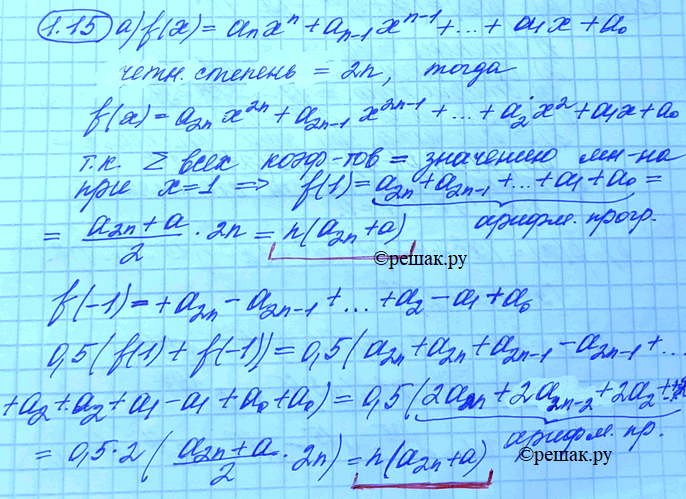 1.15 а) f(x) = aₙxⁿ + aₙ₋₁xⁿ⁻¹ + ... + a₁x + a₀
четн. степень = 2n, тогда
f(x) = a₂ₙx²ⁿ + a₂ₙ₋₁x²ⁿ⁻¹ + ... + a₂x² + a₁x + a₀
т.к. Σ всех коэф-тов = значению мн-на
при x=1 => f(1) = a₂ₙ + a₂ₙ₋₁ + ... + a₁ + a₀ =
= (a₂ₙ + a)/2 · 2n = n(a₂ₙ + a) арифм. прогр.
©решак.ру
f(-1) = + a₂ₙ - a₂ₙ₋₁ + ... + a₂ - a₁ + a₀
0,5(f(1) + f(-1)) = 0,5(a₂ₙ + a₂ₙ + a₂ₙ₋₁ - a₂ₙ₋₁ + ...
+ a₂ + a₂ + a₁ - a₁ + a₀ + a₀) = 0,5(2a₂ₙ + 2a₂ₙ₋₂ + 2a₂ +
= 0,5·2((a₂ₙ + a)/2 · 2n) = n(a₂ₙ + a) арифм. пр.
©решак.ру